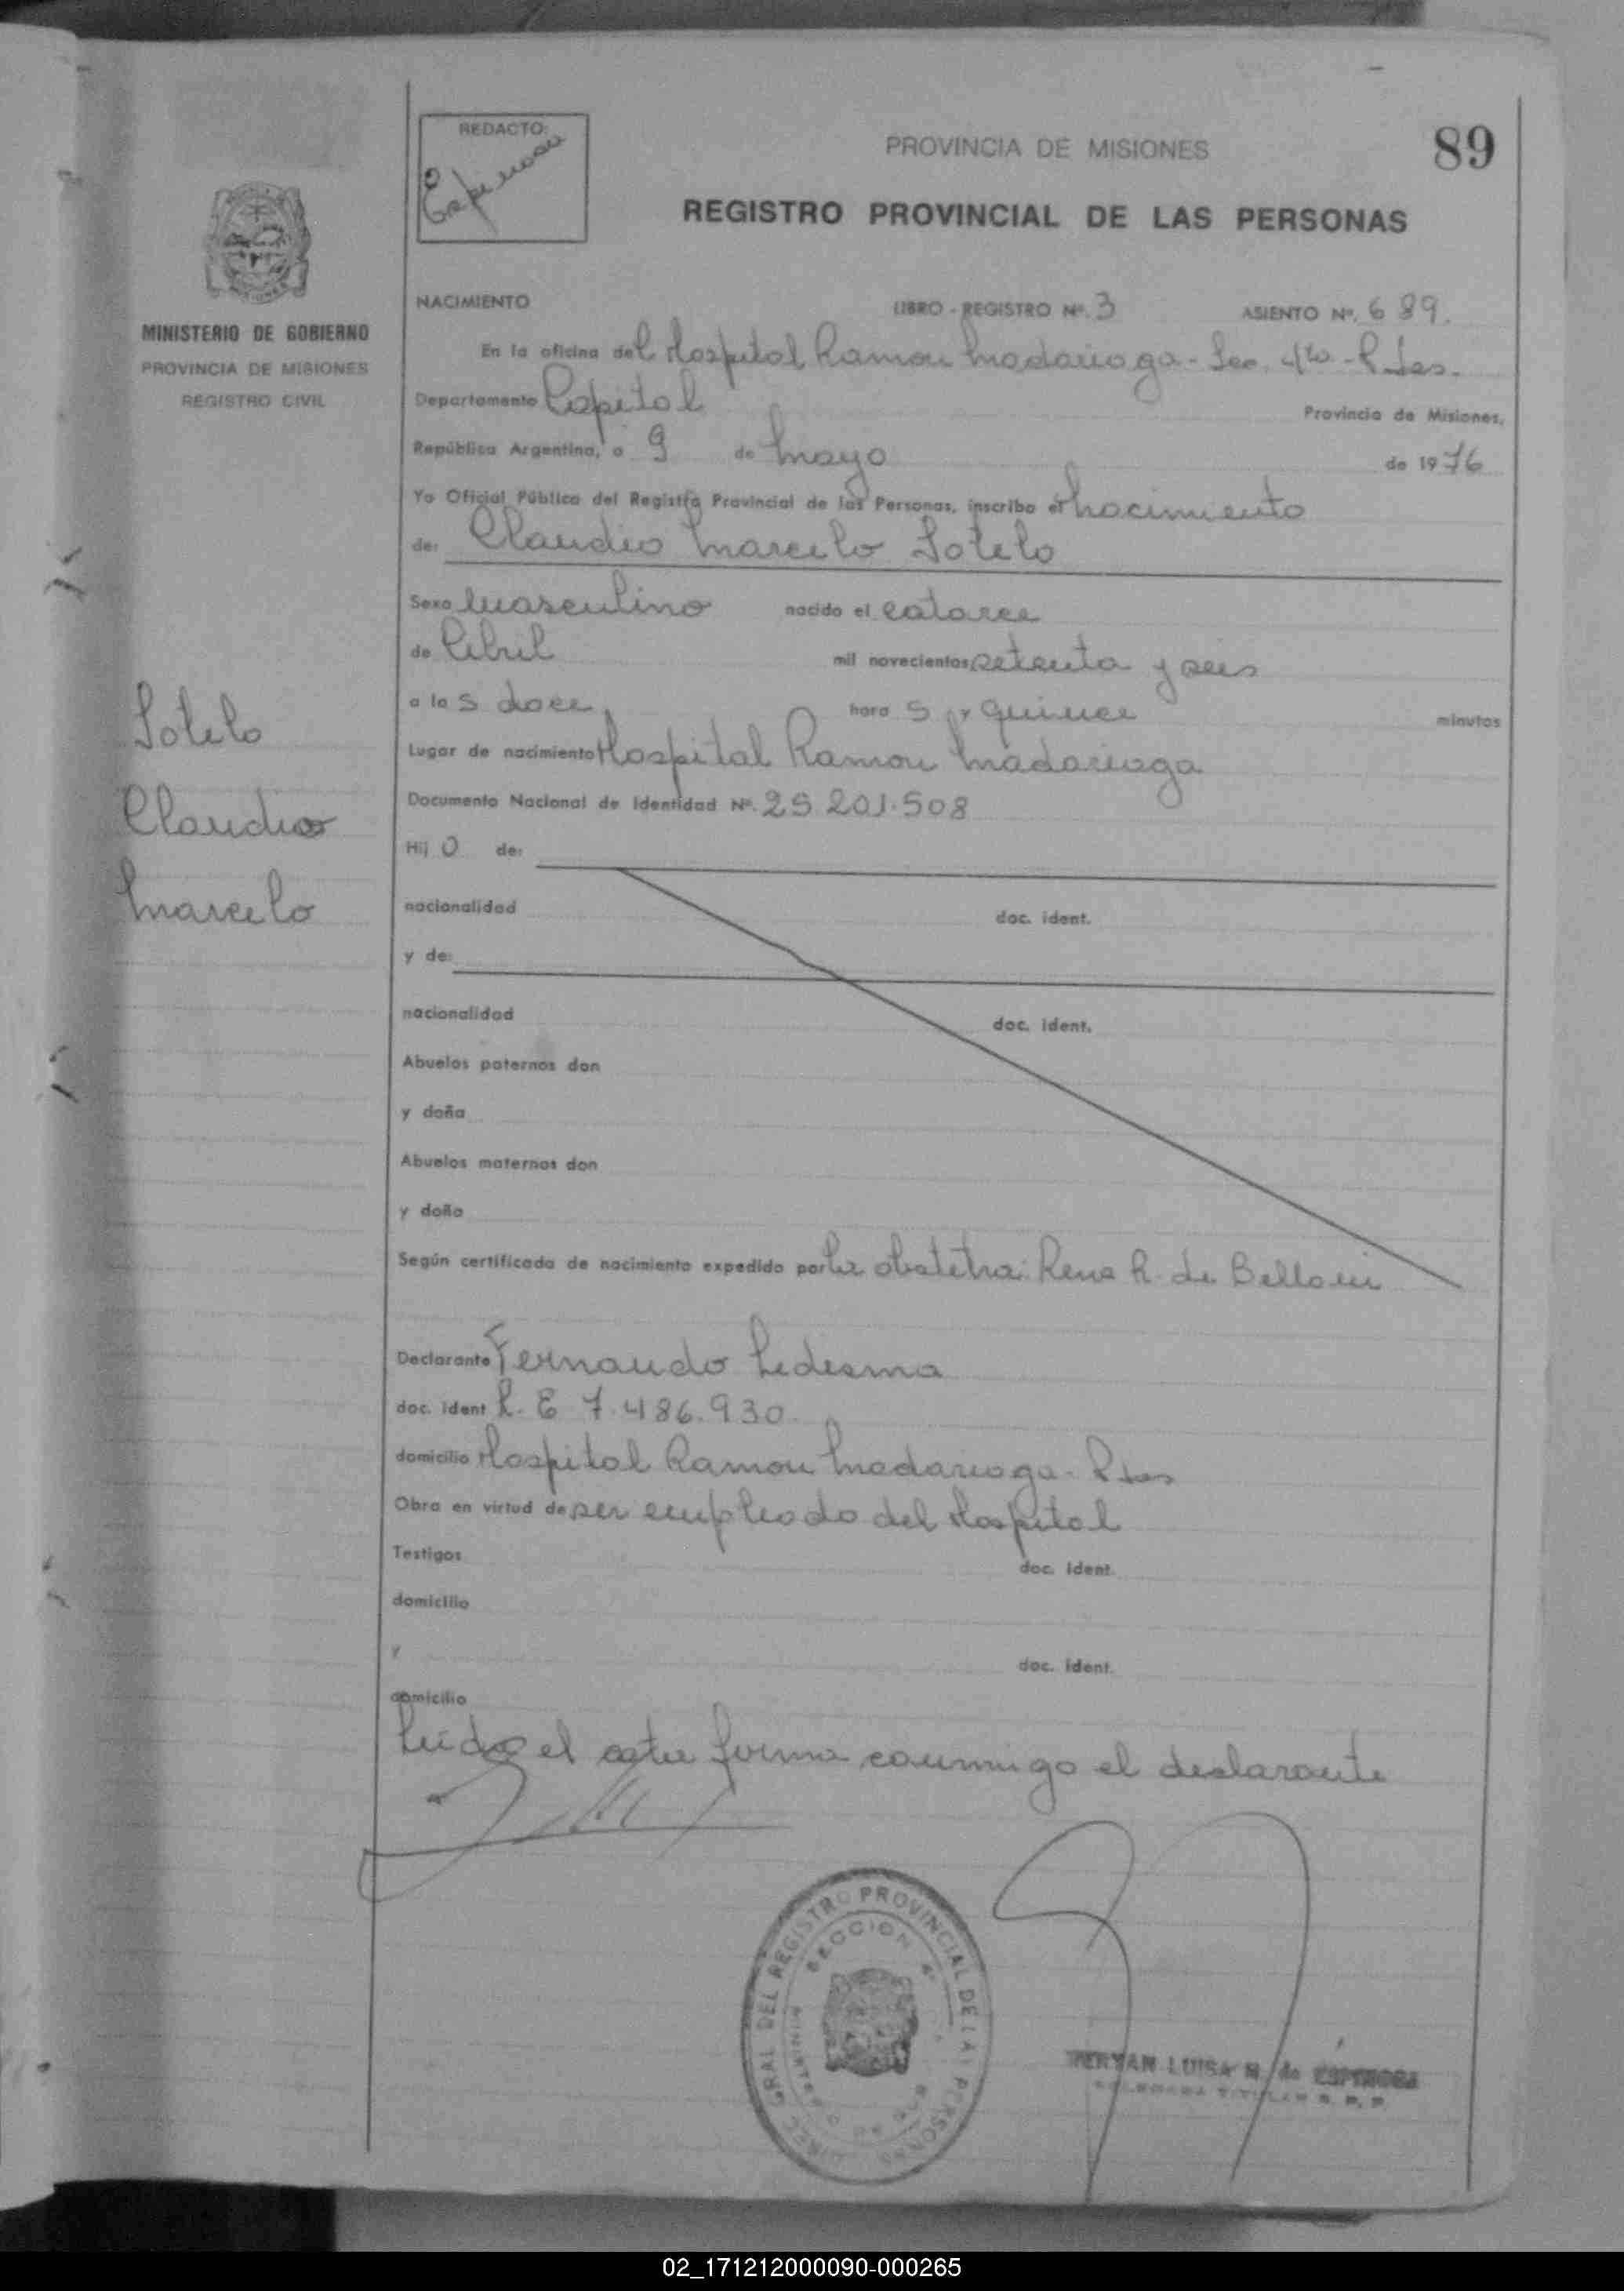 REDACTO:
Espinosa
PROVINCIA DE MISIONES
89
REGISTRO PROVINCIAL DE LAS PERSONAS
MINISTERIO DE GOBIERNO
PROVINCIA DE MISIONES
REGISTRO CIVIL
NACIMIENTO LIBRO - REGISTRO Nº. 3 ASIENTO Nº. 689.
En la oficina del Hospital Ramon Madariaga - Sec. 4ta - P. das.
Departamento Capital Provincia de Misiones,
República Argentina, a 9 de Mayo de 1976
Yo Oficial Público del Registro Provincial de las Personas, inscribo el nacimiento
de: Claudio Marcelo Sotelo
Sexo masculino nacido el catorce
de Abril mil novecientos setenta y seis
a las doce hora s y quince minutos
Lugar de nacimiento Hospital Ramon Madariaga
Documento Nacional de Identidad Nº. 25.201.508
Sotelo
Claudio
Marcelo
Hijo de:
nacionalidad doc. ident.
y de:
nacionalidad doc. ident.
Abuelos paternos don
y doña
Abuelos maternos don
y doña
Según certificado de nacimiento expedido por la obstetra: Rene R. de Belloni
Declarante Fernando Ledesma
doc. ident L. E 7.486.930
domicilio Hospital Ramon Madariaga - P das
Obra en virtud de ser empleado del Hospital
Testigos doc. ident.
domicilio
y doc. ident.
domicilio
Leida el acta firma conmigo el declarante
GRAL DEL REGISTRO PROVINCIAL DE LAS PERSONAS
SECCION 4ª
LUISA M. de ESPINOSA
02_171212000090-000265